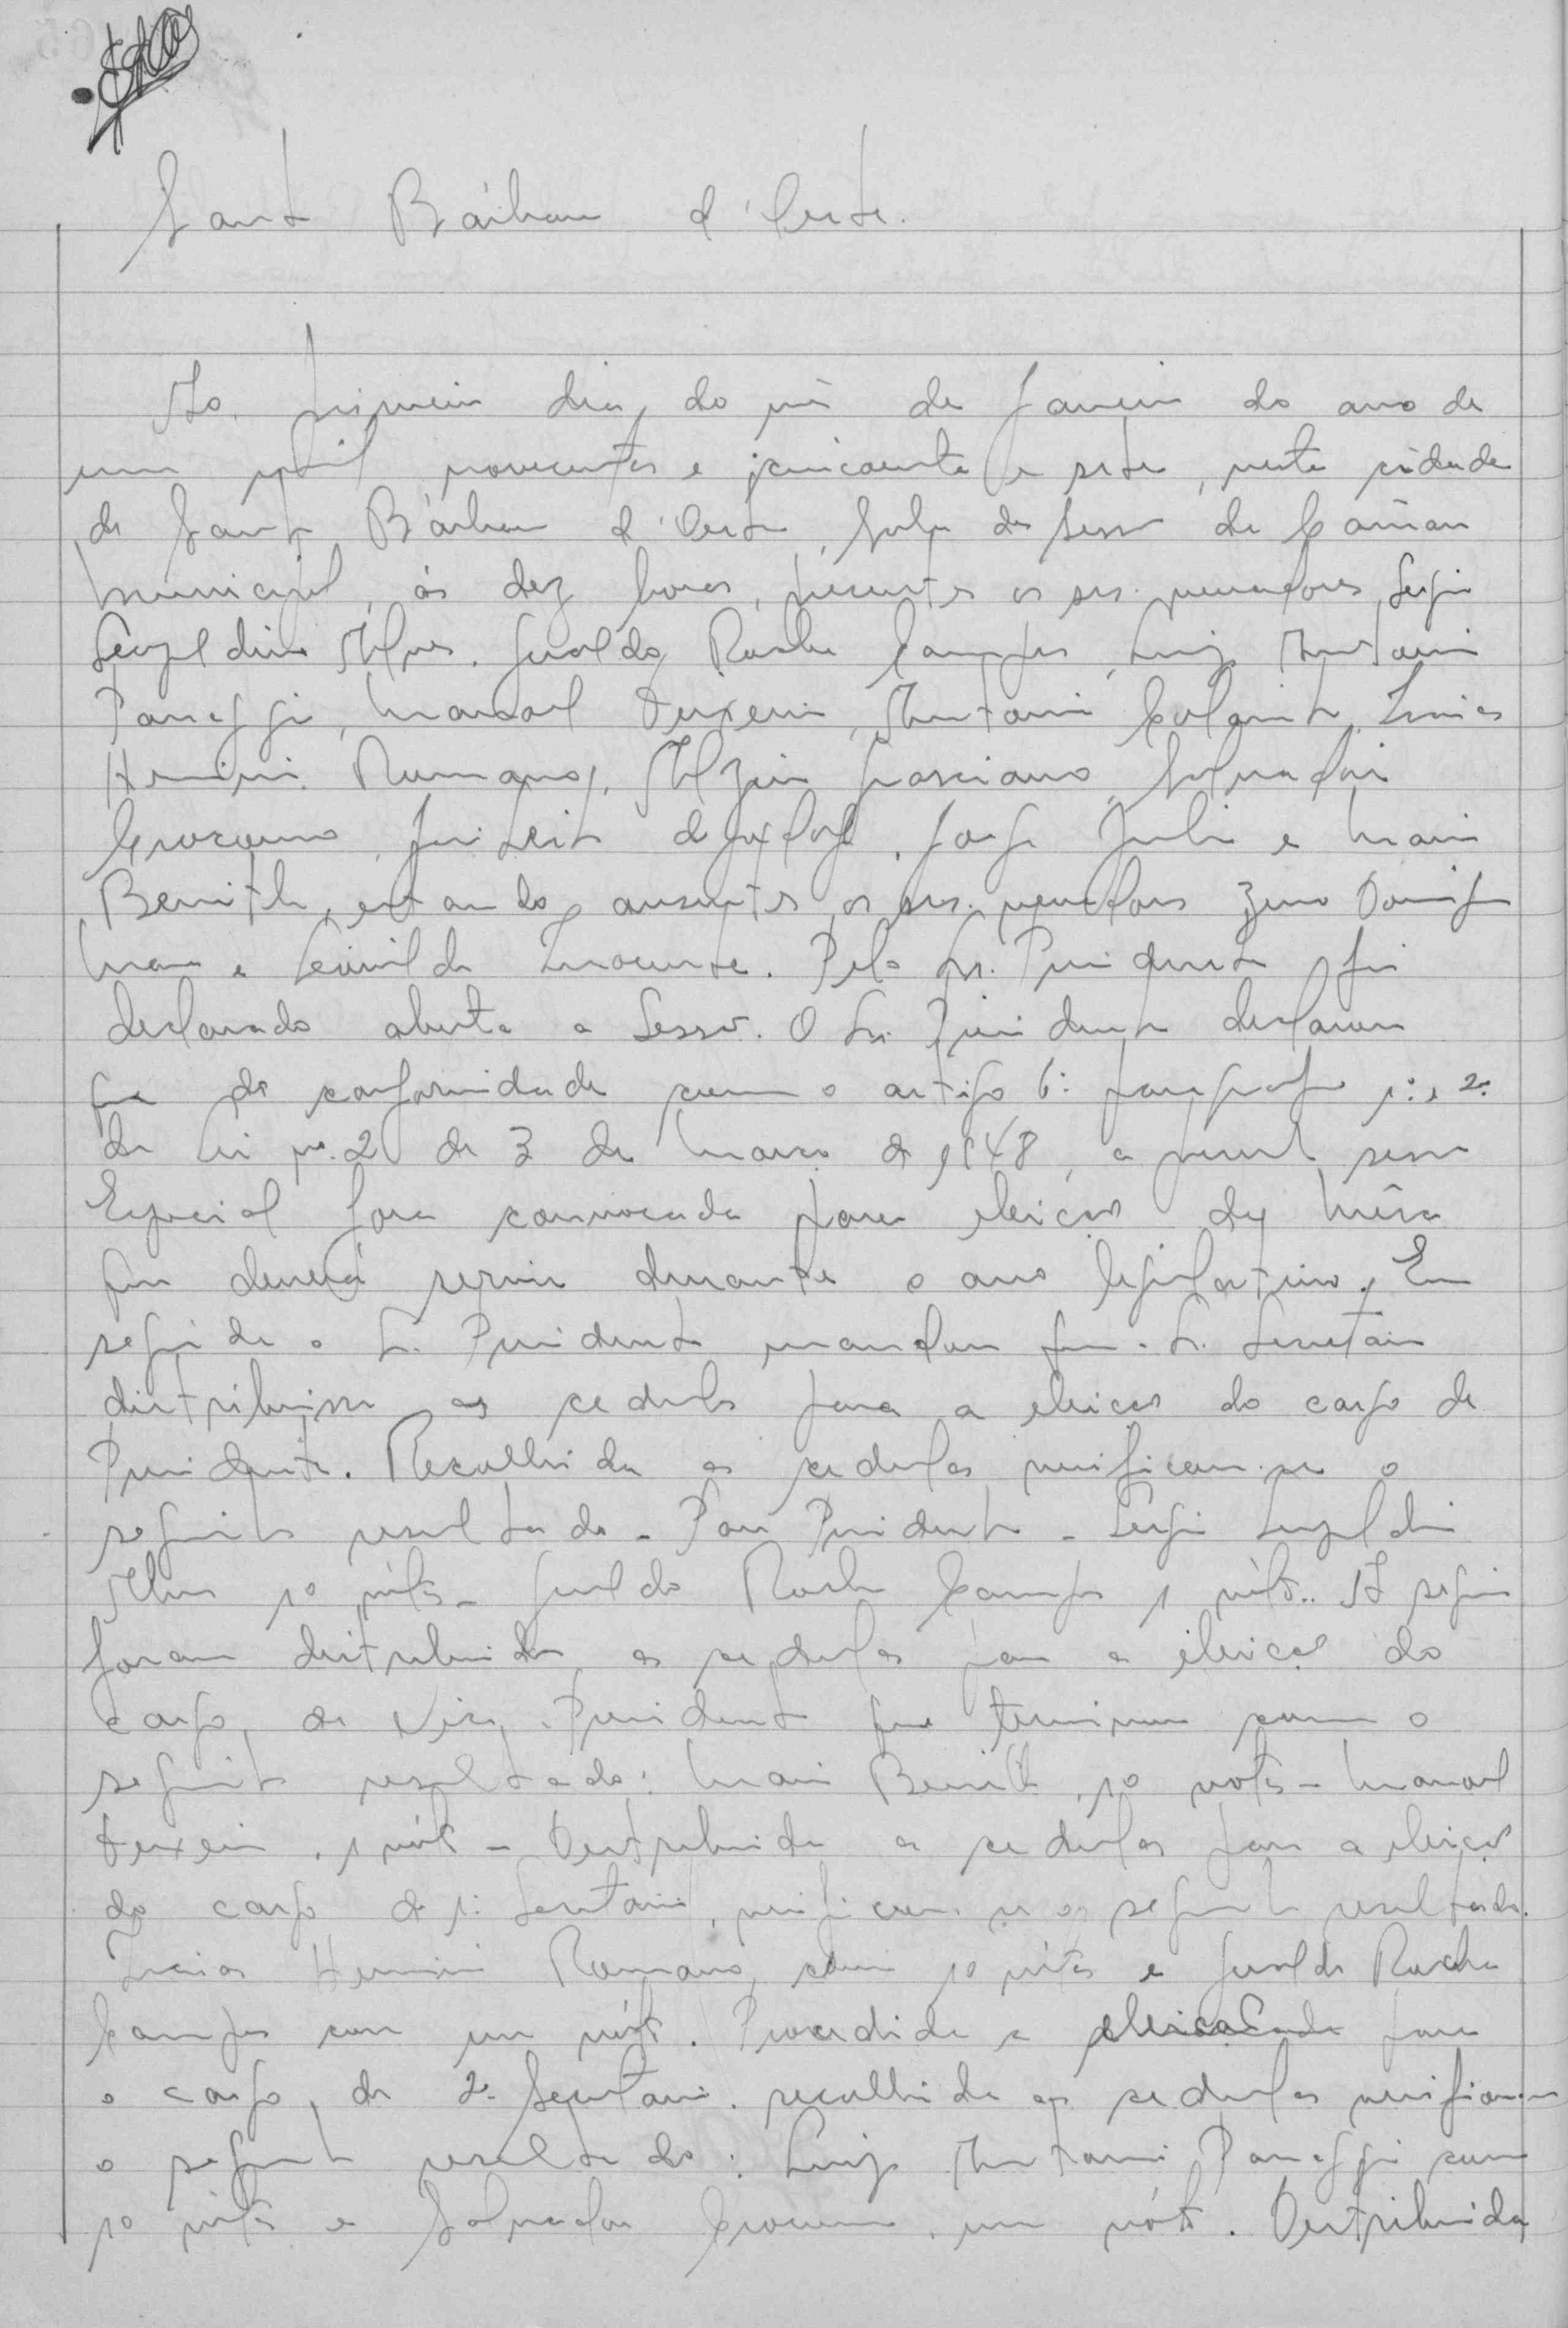 Santa Bárbara d'Oeste.
Ao primeiro dia do mês de Janeiro do ano de
um mil novecentos e cincoenta e sete, nesta cidade
de Santa Bárbara d'Oeste, Sala das Sessões da Câmara
Municipal, ás dez horas, presentes os srs. vereadores Sergio
Leopoldino Alves, Geraldo Rocha Campos, Luiz Antonio
Panaggio, Manoel Teixeira, Antonio
Romano, Alzira Graciano, Salvador
Jorge Julio e Mario
estando ausentes os srs. vereadores Zeno Domingos
Maia e Leonilda Inocente. Pelo Sr. Presidente foi
declarado aberta a Sessão. O Sr. Presidente declarou
que de conformidade com o artigo 6º paragrafo 1º e 2º
da Lei nº 2 de 3 de Março de 1948, a presente sessão
Especial fora convocada para eleição da Mêsa
que deverá servir durante o ano legislativo. Em
seguida o Sr. Presidente mandou que o Sr. Secretario
distribuisse as cedulas para a eleição do cargo de
Presidente. Recolhida as cedulas verificou-se o
seguinte resultado - Para Presidente - Sergio Leopoldino
Alves 10 vótos - Geraldo Rocha Campos 1 vóto. A seguir
foram distribuida as cedulas para a eleição do
cargo de Vice-Presidente que terminou com o
seguinte resultado: Mario 10 votos - Manoel
Teixeira, 1 vóto - Distribuida as cedulas para a eleição
do cargo de 1º Secretario, verificou-se o seguinte resultado.
Romano, com 10 vótos e Geraldo Rocha
Campos com um vóto. Procedida a para
o cargo de 2º Secretario, recolhida as cedulas verificou-se
o seguinte resultado: Luiz Antonio Panaggio com
10 vótos e Salvador um vóto. Distribuida